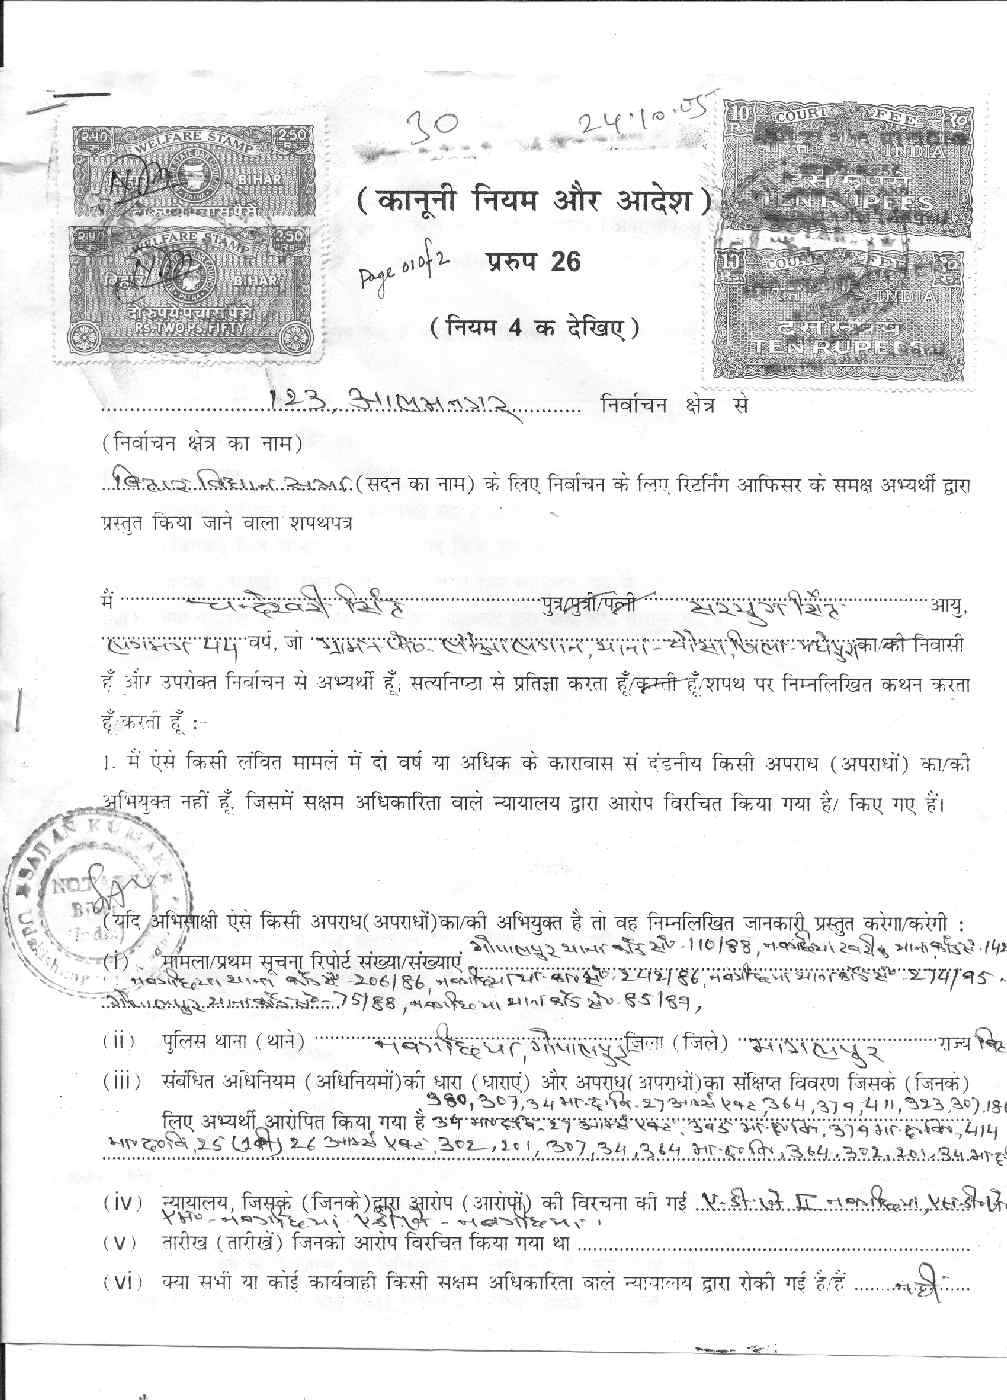 30
24.10.05
2.50 2.50
WELFARE STAMP
BIHAR
2.50 2.50
WELFARE STAMP
BIHAR
दो रूपये पचास पैसे
RS. TWO RS. FIFTY
10 COURT FEE १०
INDIA
TEN RUPEES
COURT FEE
INDIA
दस रूपये
TEN RUPEES
(कानूनी नियम और आदेश)
Page 01 of 2
प्ररुप 26
(नियम 4 क देखिए)
123, आलमनगर निर्वाचन क्षेत्र से
(निर्वाचन क्षेत्र का नाम)
बिहार विधान सभा (सदन का नाम) के लिए निर्वाचन के लिए रिटर्निंग आफिसर के समक्ष अभ्यर्थी द्वारा
प्रस्तुत किया जाने वाला शपथपत्र
मैं चन्देश्वरी सिंह पुत्र/पुत्री/पत्नी सरयुग सिंह आयु,
लगभग 44 वर्ष, जो ग्राम लौआलगान, थाना-चौसा, जिला-मधेपुरा का/की निवासी
हूँ और उपरोक्त निर्वाचन से अभ्यर्थी हूँ, सत्यनिष्टा से प्रतिज्ञा करता हूँ/करती हूँ/शपथ पर निम्नलिखित कथन करता
हूँ/करती हूँ :-
1. मैं ऐसे किसी लंवित मामले में दो वर्ष या अधिक के कारावास से दंडनीय किसी अपराध (अपराधों) का/की
अभियुक्त नहीं हूँ, जिसमें सक्षम अधिकारिता वाले न्यायालय द्वारा आरोप विरचित किया गया है/ किए गए हैं।
SAJJAN KUMAR
NOTARY
(यदि अभिसाक्षी ऐसे किसी अपराध(अपराधों)का/की अभियुक्त है तो वह निम्नलिखित जानकारी प्रस्तुत करेगा/करेगी :
गोपालपुर थाना कांड सं०-110/88, नवगछिया थाना कांड सं०-142
(i) मामला/प्रथम सूचना रिपोर्ट संख्या/संख्याएं
नवगछिया थाना कांड सं०-206/86, नवगछिया था० कां० सं० 242/86, नवगछिया थाना कांड सं० 274/95
गोपालपुर थाना कांड सं०-75/88, नवगछिया थाना कांड सं० 85/89,
(ii) पुलिस थाना (थाने) नवगछिया, गोपालपुर जिला (जिले) भागलपुर राज्य
(iii) संबंधित अधिनियम (अधिनियमों)की धारा (धाराएं) और अपराध(अपराधों)का संक्षिप्त विवरण जिसके (जिनके)
380, 307, 34 भा०द०वि० 27 आर्म्स एक्ट, 364, 379, 411, 323, 307,
लिए अभ्यर्थी आरोपित किया गया है 34 भा०द०वि० 27 आर्म्स एक्ट, 395 भा०द०वि, 379 भा०द०वि, 414
भा०द०वि, 25 26 आर्म्स एक्ट, 302, 201, 307, 34, 364 भा०द०वि, 364, 302, 201, 34
(iv) न्यायालय, जिसके (जिनके)द्वारा आरोप (आरोपों) की विरचना की गई ए०डी०जे II नवगछिया,
नवगछिया ए०डी०जे-नवगछिया
(v) तारीख (तारीखें) जिनको आरोप विरचित किया गया था
(vi) क्या सभी या कोई कार्यवाही किसी सक्षम अधिकारिता वाले न्यायालय द्वारा रोकी गई है/हैं नहीं